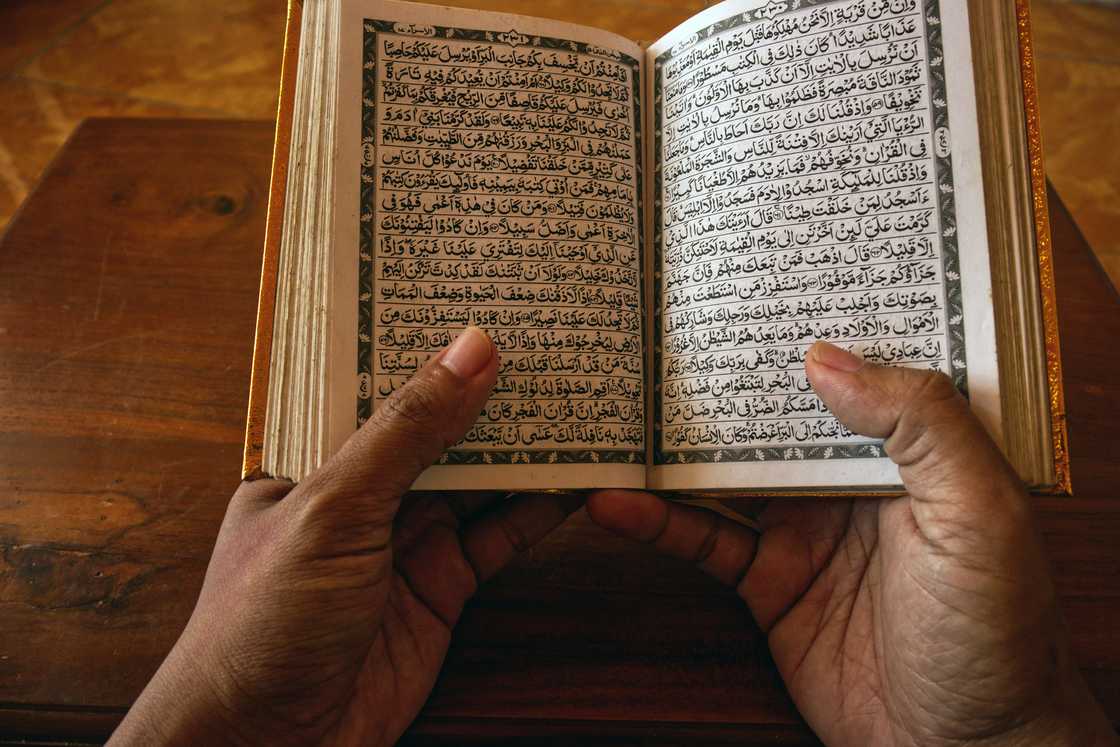 ٢٣٠
وَاِنْ مِّنْ قَرْيَةٍ اِلَّا نَحْنُ مُهْلِكُوْهَا قَبْلَ يَوْمِ الْقِيٰمَةِ اَوْ مُعَذِّبُوْهَا
عَذَابًا شَدِيْدًا كَانَ ذٰلِكَ فِى الْكِتٰبِ مَسْطُوْرًا ٥٨ وَمَا مَنَعَنَآ
اَنْ نُّرْسِلَ بِالْاٰيٰتِ اِلَّآ اَنْ كَذَّبَ بِهَا الْاَوَّلُوْنَ وَاٰتَيْنَا
ثَمُوْدَ النَّاقَةَ مُبْصِرَةً فَظَلَمُوْا بِهَا وَمَا نُرْسِلُ بِالْاٰيٰتِ اِلَّا
تَخْوِيْفًا ٥٩ وَاِذْ قُلْنَا لَكَ اِنَّ رَبَّكَ اَحَاطَ بِالنَّاسِ وَمَا جَعَلْنَا
الرُّءْيَا الَّتِيْٓ اَرَيْنٰكَ اِلَّا فِتْنَةً لِّلنَّاسِ وَالشَّجَرَةَ الْمَلْعُوْنَةَ
فِى الْقُرْاٰنِ وَنُخَوِّفُهُمْ فَمَا يَزِيْدُهُمْ اِلَّا طُغْيَانًا كَبِيْرًا ٦٠
وَاِذْ قُلْنَا لِلْمَلٰٓئِكَةِ اسْجُدُوْا لِاٰدَمَ فَسَجَدُوْٓا اِلَّآ اِبْلِيْسَ قَالَ
ءَاَسْجُدُ لِمَنْ خَلَقْتَ طِيْنًا ٦١ قَالَ اَرَءَيْتَكَ هٰذَا الَّذِيْ
كَرَّمْتَ عَلَيَّ لَئِنْ اَخَّرْتَنِ اِلٰى يَوْمِ الْقِيٰمَةِ لَاَحْتَنِكَنَّ ذُرِّيَّتَهٗٓ
اِلَّا قَلِيْلًا ٦٢ قَالَ اذْهَبْ فَمَنْ تَبِعَكَ مِنْهُمْ فَاِنَّ جَهَنَّمَ
جَزَآؤُكُمْ جَزَآءً مَّوْفُوْرًا ٦٣ وَاسْتَفْزِزْ مَنِ اسْتَطَعْتَ مِنْهُمْ
بِصَوْتِكَ وَاَجْلِبْ عَلَيْهِمْ بِخَيْلِكَ وَرَجِلِكَ وَشَارِكْهُمْ فِى
الْاَمْوَالِ وَالْاَوْلَادِ وَعِدْهُمْ وَمَا يَعِدُهُمُ الشَّيْطٰنُ اِلَّا غُرُوْرًا ٦٤
اِنَّ عِبَادِيْ لَيْسَ سُلْطٰنٌ وَكَفٰى بِرَبِّكَ وَكِيْلًا ٦٥
فِى الْبَحْرِ لِتَبْتَغُوْا مِنْ فَضْلِهٖ اِنَّهٗ
مَسَّكُمُ الضُّرُّ فِى الْبَحْرِ ضَلَّ مَنْ
نَجّٰكُمْ اِلَى الْبَرِّ اَعْرَضْتُمْ وَكَانَ الْاِنْسَانُ كَفُوْرًا
الاسراء ١٧
٢٣١
اَفَاَمِنْتُمْ اَنْ يَّخْسِفَ بِكُمْ جَانِبَ الْبَرِّ اَوْ يُرْسِلَ عَلَيْكُمْ حَاصِبًا
ثُمَّ لَا تَجِدُوْا لَكُمْ وَكِيْلًا ٦٨ اَمْ اَمِنْتُمْ اَنْ يُّعِيْدَكُمْ فِيْهِ تَارَةً
اُخْرٰى فَيُرْسِلَ عَلَيْكُمْ قَاصِفًا مِّنَ الرِّيْحِ فَيُغْرِقَكُمْ بِمَا كَفَرْتُمْ
ثُمَّ لَا تَجِدُوْا لَكُمْ عَلَيْنَا بِهٖ تَبِيْعًا ٦٩ وَلَقَدْ كَرَّمْنَا بَنِيْٓ اٰدَمَ وَ
حَمَلْنٰهُمْ فِى الْبَرِّ وَالْبَحْرِ وَرَزَقْنٰهُمْ مِّنَ الطَّيِّبٰتِ وَفَضَّلْنٰهُمْ
عَلٰى كَثِيْرٍ مِّمَّنْ خَلَقْنَا تَفْضِيْلًا ٧٠ يَوْمَ نَدْعُوْا كُلَّ اُنَاسٍ
بِاِمَامِهِمْ فَمَنْ اُوْتِيَ كِتٰبَهٗ بِيَمِيْنِهٖ فَاُولٰٓئِكَ يَقْرَءُوْنَ كِتٰبَهُمْ
وَلَا يُظْلَمُوْنَ فَتِيْلًا ٧١ وَمَنْ كَانَ فِيْ هٰذِهٖٓ اَعْمٰى فَهُوَ فِى
الْاٰخِرَةِ اَعْمٰى وَاَضَلُّ سَبِيْلًا ٧٢ وَاِنْ كَادُوْا لَيَفْتِنُوْنَكَ
عَنِ الَّذِيْٓ اَوْحَيْنَآ اِلَيْكَ لِتَفْتَرِيَ عَلَيْنَا غَيْرَهٗ وَاِذًا
لَّاتَّخَذُوْكَ خَلِيْلًا ٧٣ وَلَوْلَآ اَنْ ثَبَّتْنٰكَ لَقَدْ كِدْتَّ تَرْكَنُ اِلَيْهِمْ
شَيْئًا قَلِيْلًا ٧٤ اِذًا لَّاَذَقْنٰكَ ضِعْفَ الْحَيٰوةِ وَضِعْفَ الْمَمَاتِ
ثُمَّ لَا تَجِدُ لَكَ عَلَيْنَا نَصِيْرًا ٧٥ وَاِنْ كَادُوْا لَيَسْتَفِزُّوْنَكَ مِنَ
الْاَرْضِ لِيُخْرِجُوْكَ مِنْهَا وَاِذًا لَّا خِلٰفَكَ اِلَّا قَلِيْلًا ٧٦
سُنَّةَ مَنْ قَدْ اَرْسَلْنَا قَبْلَكَ مِنْ لِسُنَّتِنَا
تَحْوِيْلًا ٧٧ اَقِمِ الصَّلٰوةَ لِدُلُوْكِ الشَّمْسِ الَّيْلِ
وَقُرْاٰنَ الْفَجْرِ اِنَّ قُرْاٰنَ الْفَجْرِ كَانَ
فَتَهَجَّدْ بِهٖ نَافِلَةً لَّكَ عَسٰٓى اَنْ يَّبْعَثَكَ